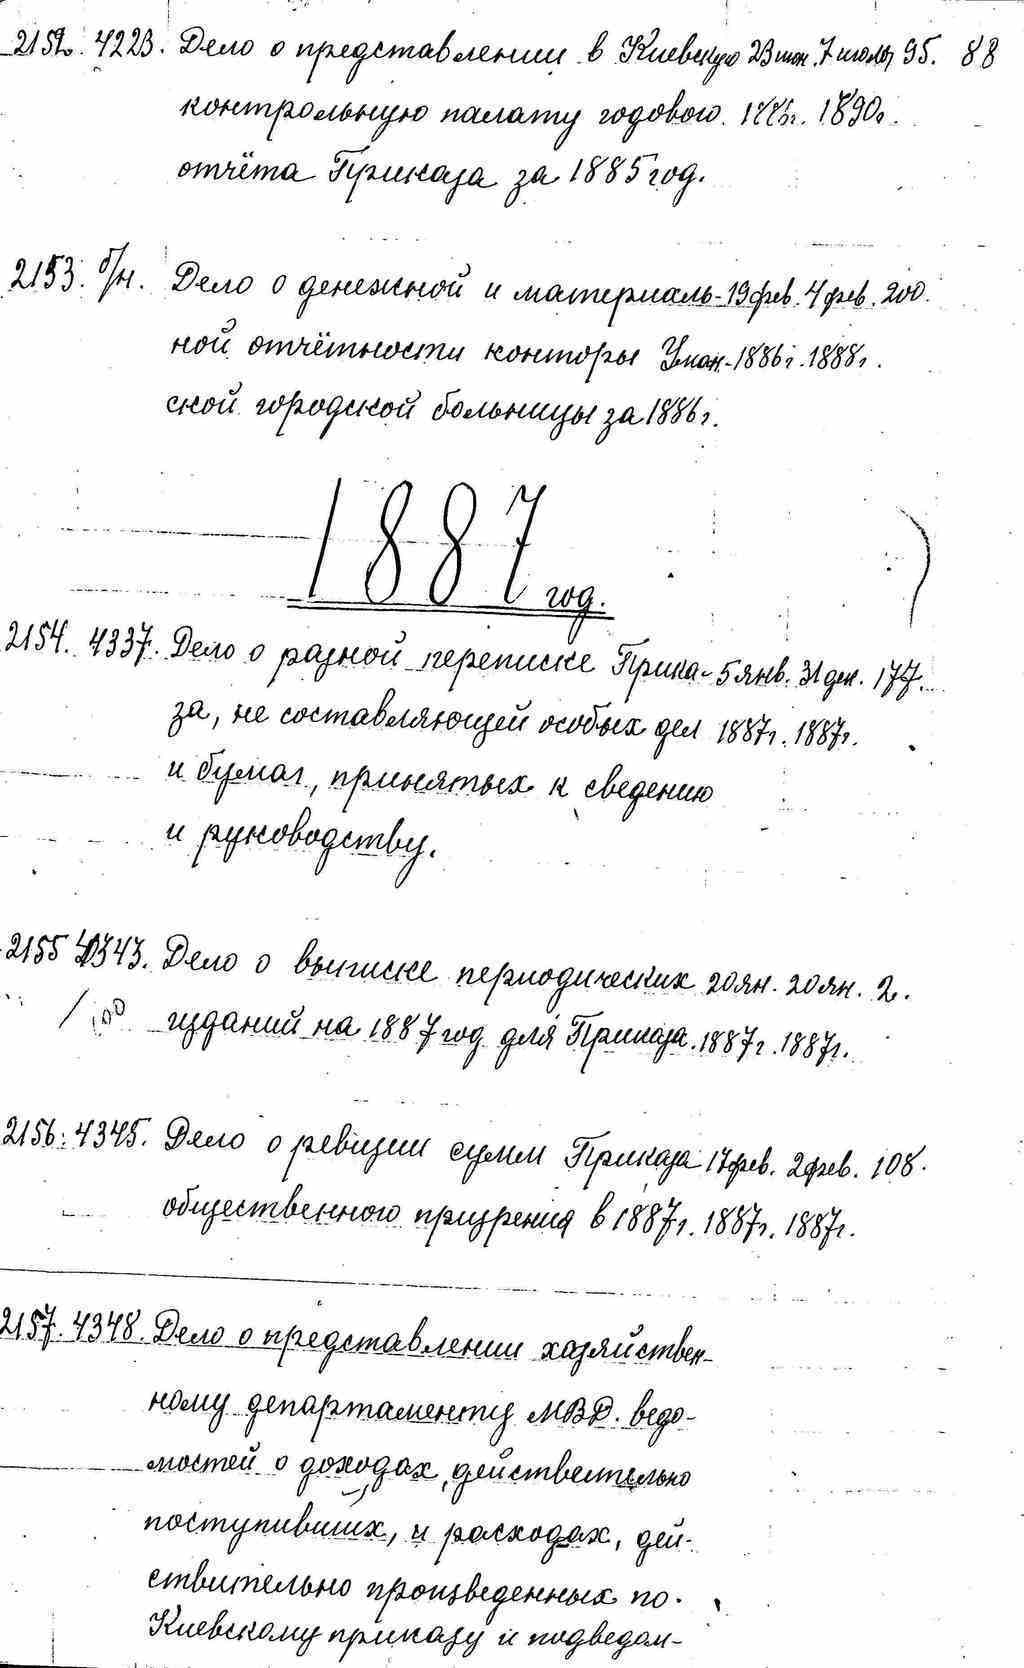 2152. 4223. Дело о представлении в Киевскую 23 июн. 7 июля 95. 88
контрольную палату годового 1886г. 1890г.
отчёта Приказа за 1885 год.
2153. б/н. Дело о денежной и материаль- 19 фев. 4 фев. 200.
ной отчётности конторы Уман- 1886г. 1888г.
ской городской больницы за 1886г.
1887 год.
2154. 4337. Дело о разной переписке Прика- 5 янв. 31 дек. 177.
за, не составляющей особых дел 1887г. 1887г.
и бумаг, принятых к сведению
и руководству.
2155 4343. Дело о выписке периодических 20 ян. 20 ян. 2.
изданий на 1887 год для Приказа. 1887г. 1887г.
2156. 4345. Дело о ревизии сумм Приказа 17 фев. 2 фев. 108.
общественного призрения в 1887г. 1887г. 1887г.
2157. 4348. Дело о представлении хозяйствен-
ному департаменту МВД. ведо-
мостей о доходах, действительно
поступивших, и расходах, дей-
ствительно произведенных по
Киевскому приказу и подведом-